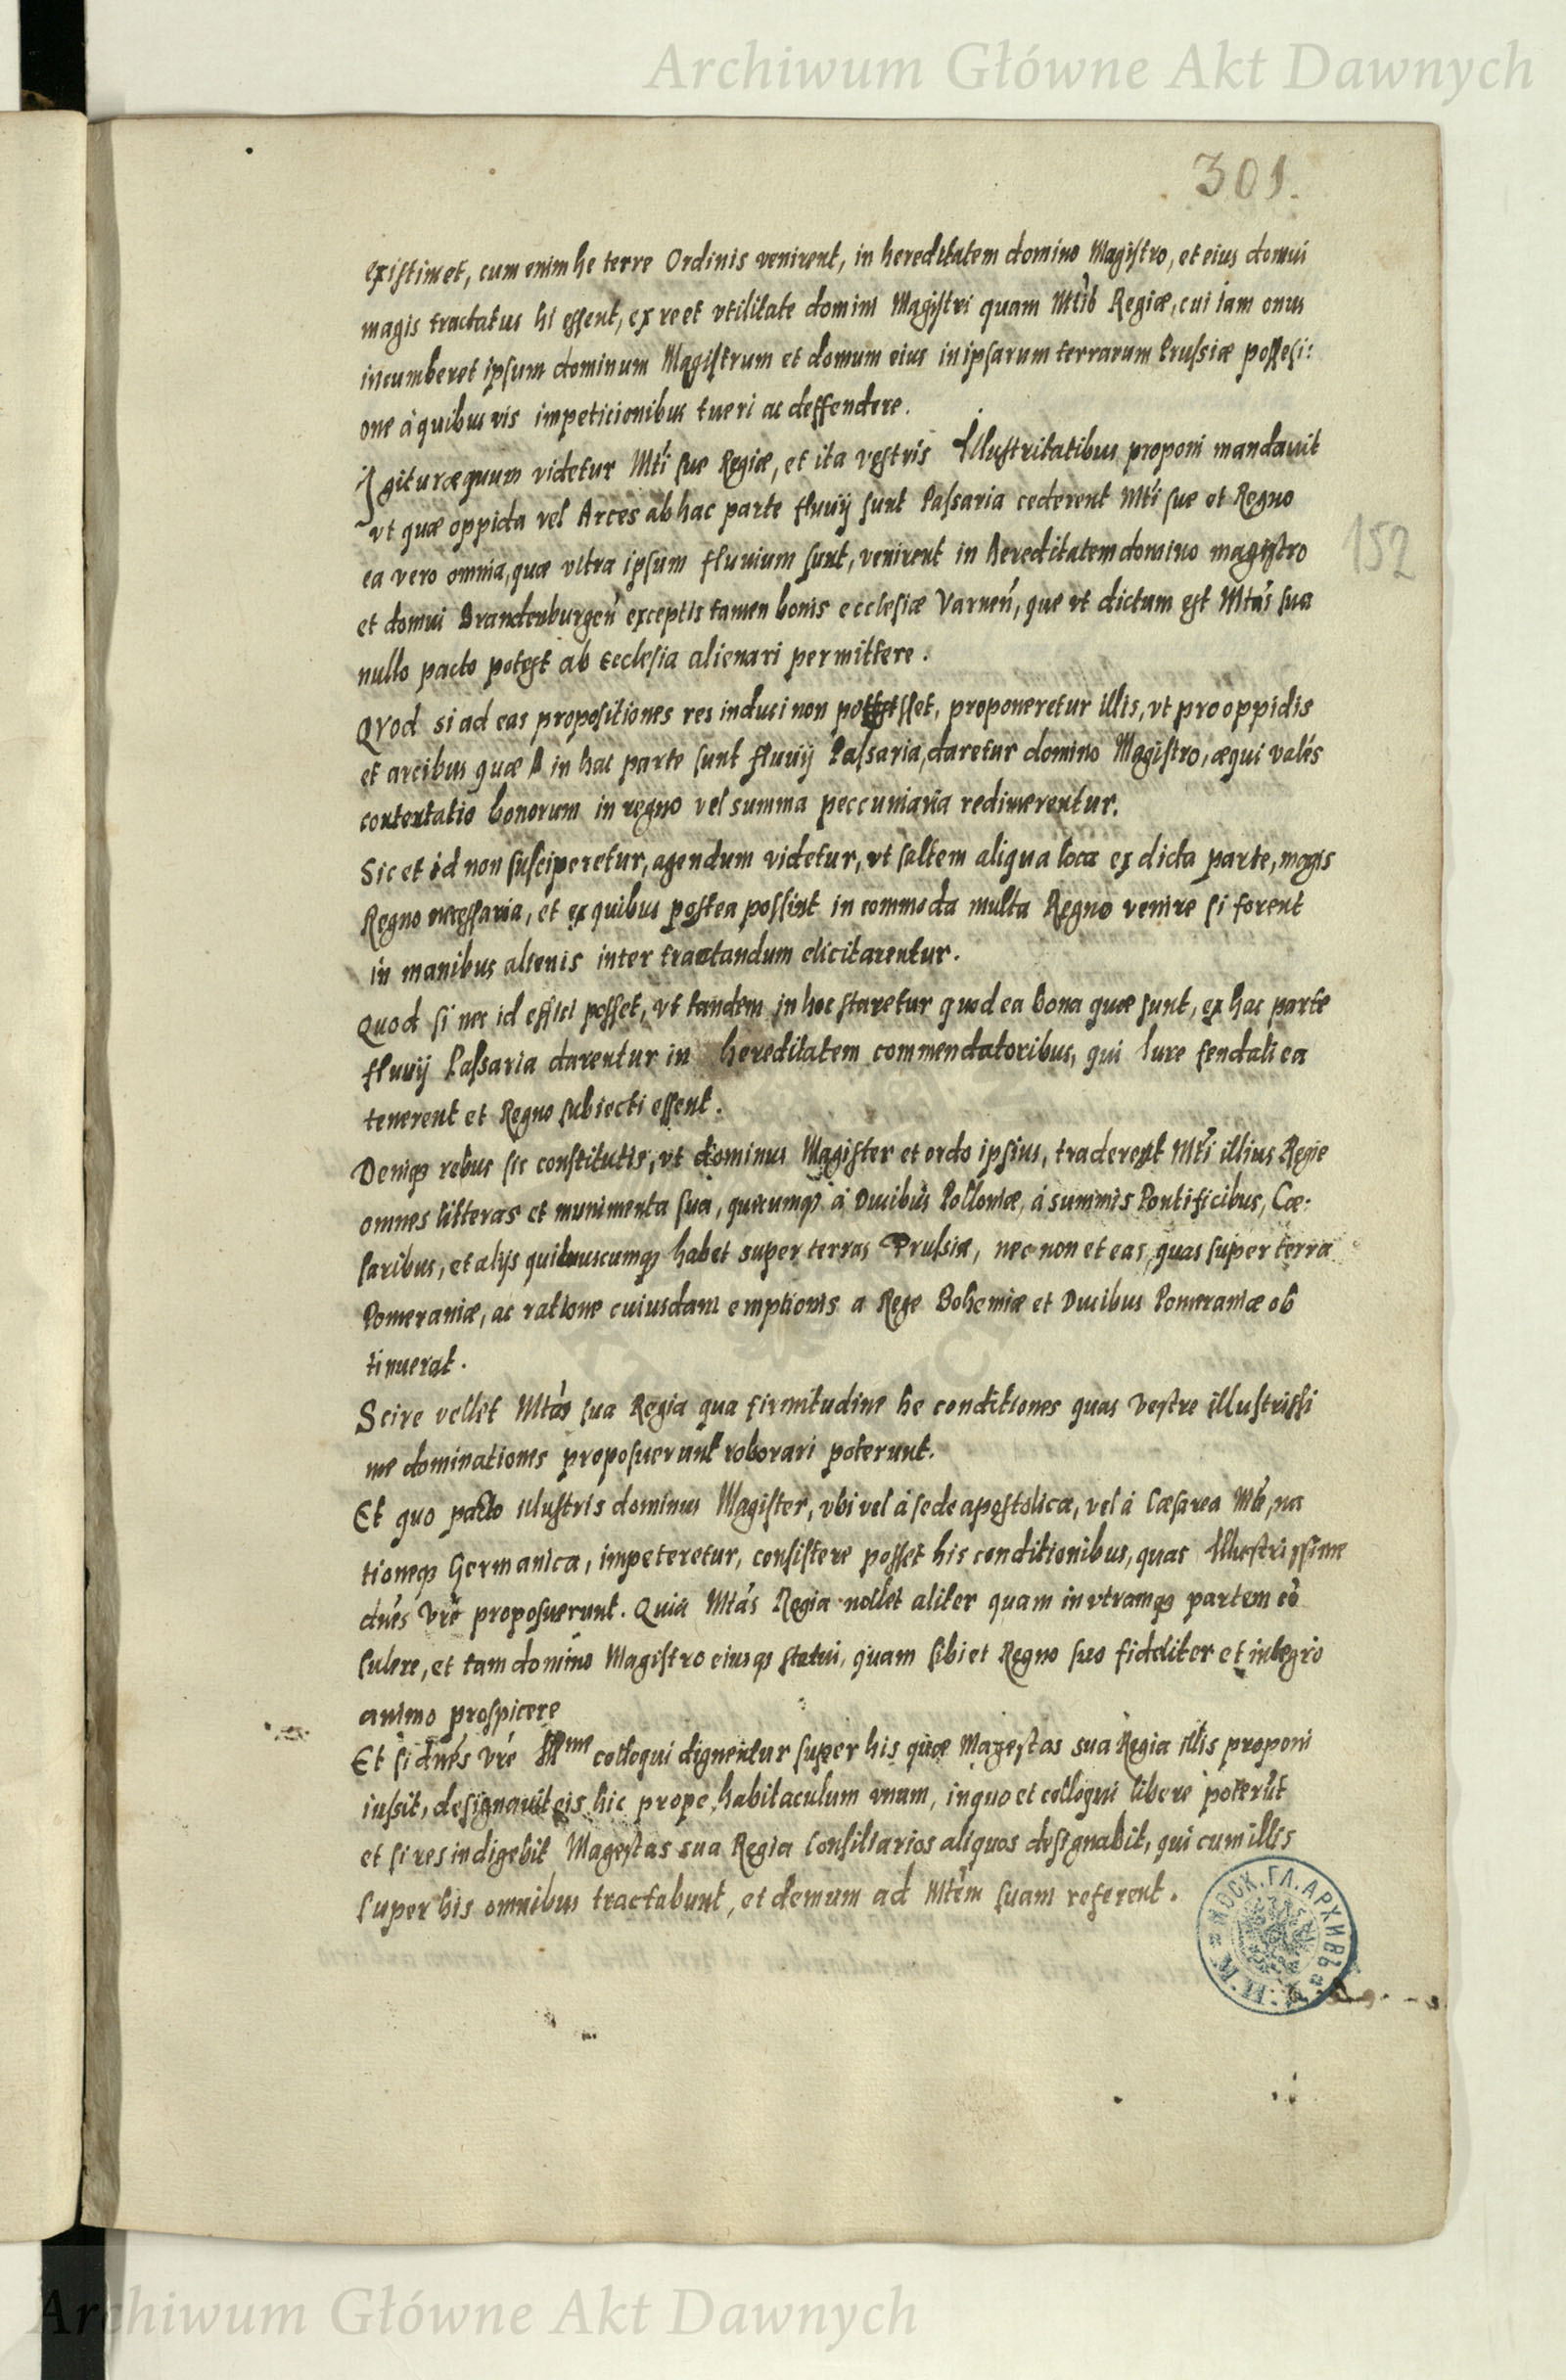 Archiwum Główne Akt Dawnych
301.
existimet, cum enim he terre Ordinis venirent, in hereditatem domino Magistro, et eius domui
magis tractatus hi essent, ex re et vtilitate domini Magistri quam Mtis Regiæ, cui iam onus
incumberet ipsum dominum Magistrum et domum eius in ipsarum terrarum Prussiæ possesi:
one à quibus vis impeticionibus tueri ac deffendere.
Igitur æquum videtur Mti sue Regiæ, et ita vestris Illustritatibus proponi mandauit
vt quæ oppida vel Arces ab hac parte fluuij sunt Passaria cederent Mti suæ et Regno
152
ea vero omnia, quæ vltra ipsum fluuium sunt, venirent in hereditatem domino magistro
et domui Brandenburgen̄ exceptis tamen bonis ecclesiæ Varmen̄, que vt dictum est Mtas sua
nullo pacto potest ab ecclesia alienari permittere.
Qvod si ad eas propositiones res induci non posset, proponeretur illis, vt pro oppidis
et arcibus quæ in hac parte sunt fluuij Passaria, daretur domino Magistro, æqui valēs
contentatio bonorum in regno vel summa peccuniaria redimerentur.
Sic et id non susciperetur, agendum videtur, vt saltem aliqua loca ex dicta parte, magis
Regno necessaria, et ex quibus postea possint in commoda multa Regno venire si forent
in manibus alienis inter tractandum elicitarentur.
Quod si nec id effici posset, vt tandem in hoc staretur quod ea bona quæ sunt, ex hac parte
fluuij Passaria darentur in hereditatem commendatoribus, qui Iure feudali ea
tenerent et Regno subiecti essent.
Deniqꝫ rebus sic constitutis, vt dominus Magister et ordo ipsius, traderent Mti illius Regie
omnes litteras et munimenta sua, quecumqꝫ à Ducibus Polloniæ, à summis Pontificibus, Cæ:
saribus, et alijs quibuscumqꝫ habet super terras Prussiæ, nec non et eas, quas super terra
Pomeraniæ, ac ratione cuiusdam emptionis a Rege Bohemiæ et Ducibus Pomeraniæ ob
tinuerat.
Scire vellet Mtas sua Regia qua firmitudine he conditiones quas Vestre illustrissi
me dominationes proposuerunt roborari poterunt.
Et quo pacto illustris dominus Magister, vbi vel à sede apostolica, vel à Cæsarea Mte, na
tioneqꝫ Germanica, impeteretur, consistere posset his conditionibus, quas Illustrissime
dnēs Vrē proposuerunt. Quia Mtas Regia nollet aliter quam in vtramqꝫ partem cō
sulere, et tam domino Magistro eiusqꝫ statui, quam sibi et Regno suo fideliter et integro
animo prospicere
Et si dnēs Vrē Illme colloqui dignentur super his quæ Magestas sua Regia illis proponi
iussit, designauit eis hic prope, habitaculum vnum, in quo et colloqui libere poterūt
et si res indigebit Magestas sua Regia Consiliarios aliquos designabit, qui cum illis
super his omnibus tractabunt, et demum ad Mtem suam referent.
МОСК. ГЛ. АРХИВЪ
Archiwum Główne Akt Dawnych